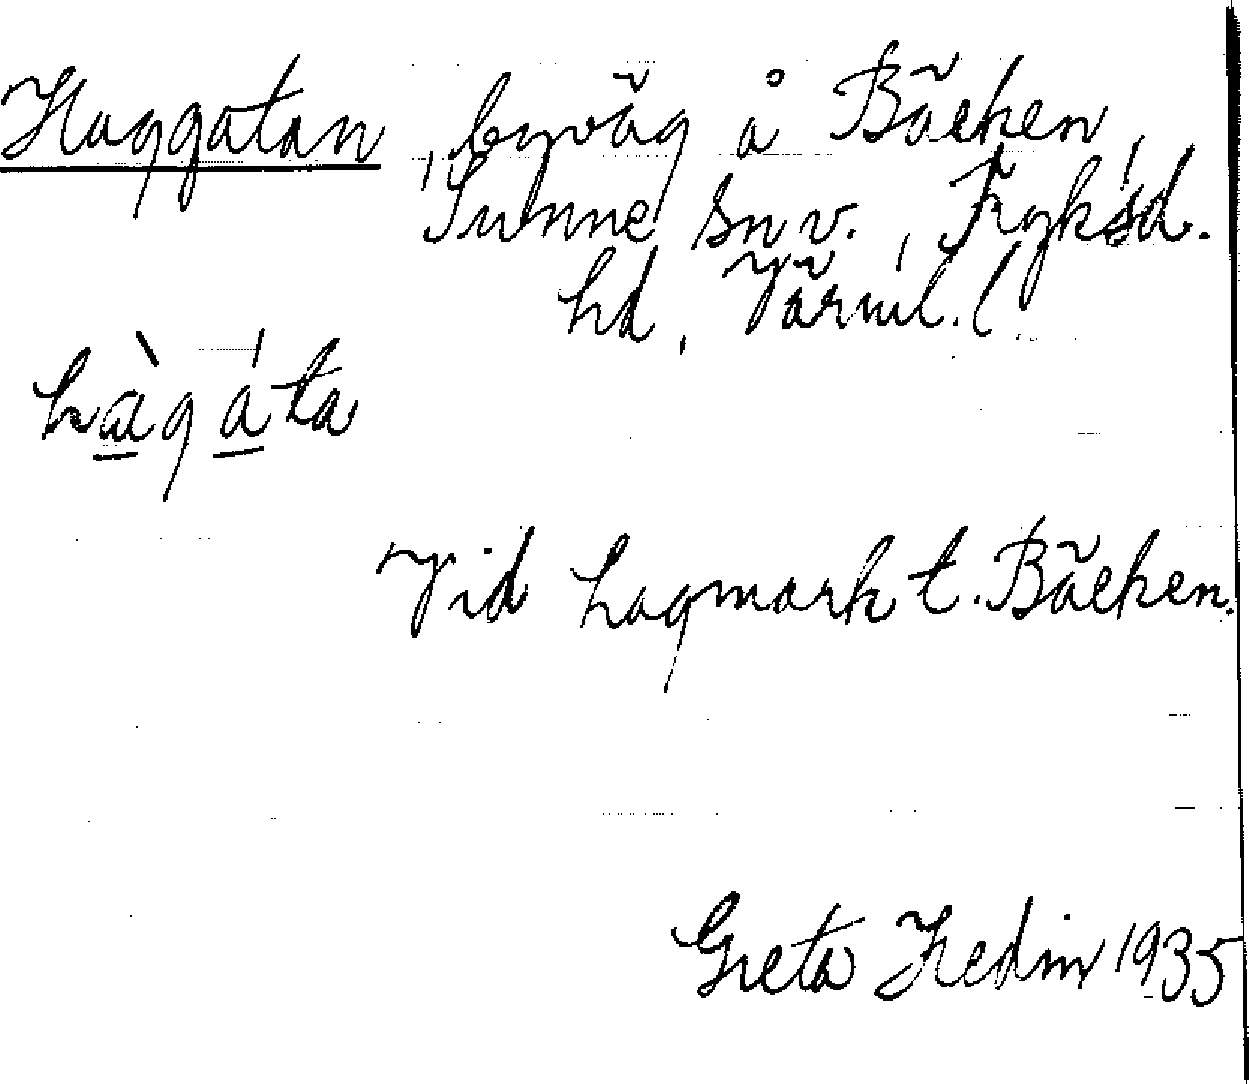 Haggatan, byväg å Bäcken,
Sunne sn v., Fryksd.
hd, Värml. l.
hàgáta
Vid hagmark t. Bäcken.
Greta Hedin 1935